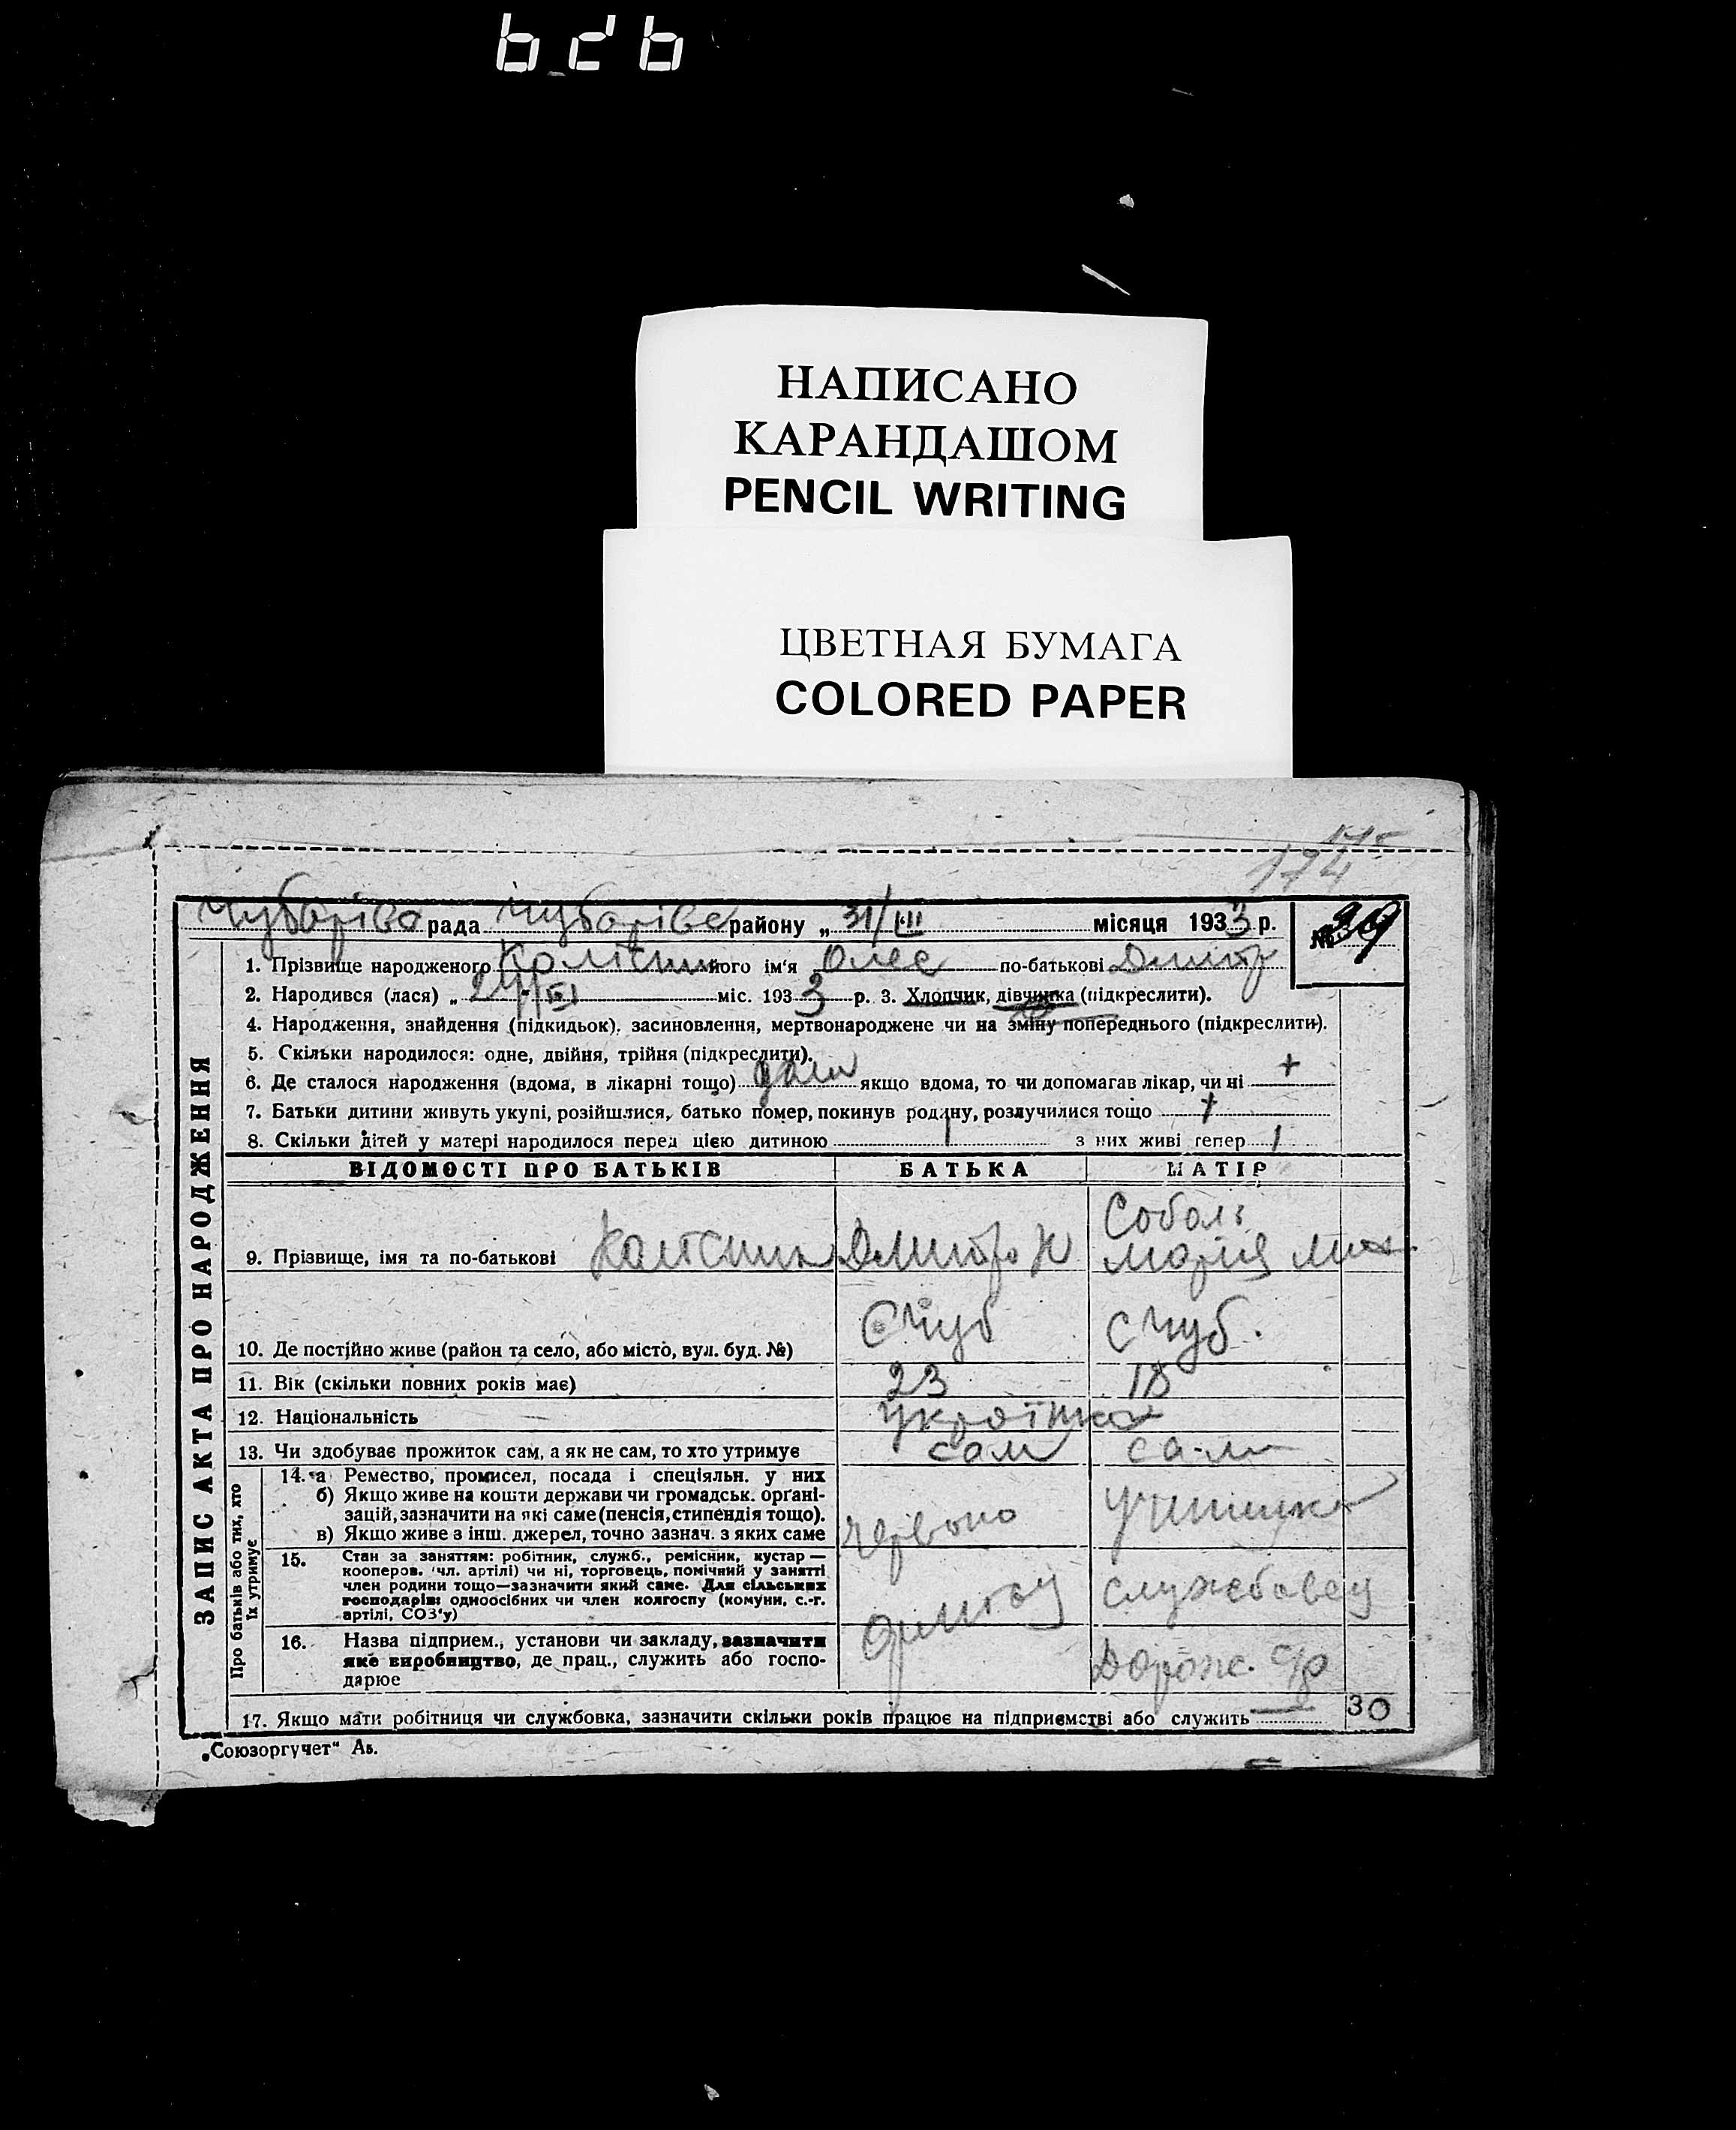 НАПИСАНО
КАРАНДАШОМ
PENCIL WRITING
ЦВЕТНАЯ БУМАГА
COLORED PAPER
174
рада района „ 31/III місяця 1933 р.
№ 39
ЗАПИС АКТА ПРО НАРОДЖЕННЯ
1. Прізвище народженого його ім'я по-батькові Дмитр
2. Народився (лася) „ міс. 1933 р. 3. Хлопчик, дівчинка (підкреслити).
4. Народження, знайдення (підкидьок), засиновлення, мертвонароджене чи на зміну попереднього (підкреслити).
5. Скільки народилося: одне, двійня, трійня (підкреслити).
6. Де сталося народження (вдома, в лікарні тощо) якщо вдома, то чи допомагав лікар, чи ні +
7. Батьки дитини живуть укупі, розійшлися, батько помер, покинув родину, розлучилися тощо +
8. Скільки дітей у матері народилося перед цією дитиною 1 з них живі тепер 1
ВІДОМОСТІ ПРО БАТЬКІВ БАТЬКА МАТІР
9. Прізвище, імя та по-батькові Дмитро Н Соболь Мария Мих.
10. Де постійно живе (район та село, або місто, вул. буд. №) С Чуб С Чуб.
11. Вік (скільки повних років має) 23 18
12. Національність
13. Чи здобуває прожиток сам, а як не сам, то хто утримує сам сама
Про батьків або тих, хто їх утримує
14. а Ремество, промисел, посада і спеціяльн. у них
б) Якщо живе на кошти держави чи громадськ. орґанізацій, зазначити на які саме (пенсія, стипендія тощо).
в) Якщо живе з інш. джерел, точно зазнач. з яких саме
Червоно
15. Стан за заняттям: робітник, служб., ремісник, кустар —
кооперов. (чл. артілі) чи ні, торговець, помічний у занятті
член родини тощо—зазначити який саме. Для сільських
господарів: одноосібних чи член колгоспу (комуни, с.-г.
артілі, СОЗ'у)
16. Назва підприєм., установи чи закладу, зазначити
яке виробництво, де прац., служить або господарює
17. Якщо мати робітниця чи службовка, зазначити скільки років працює на підприємстві або служить
30
„Союзоргучет“